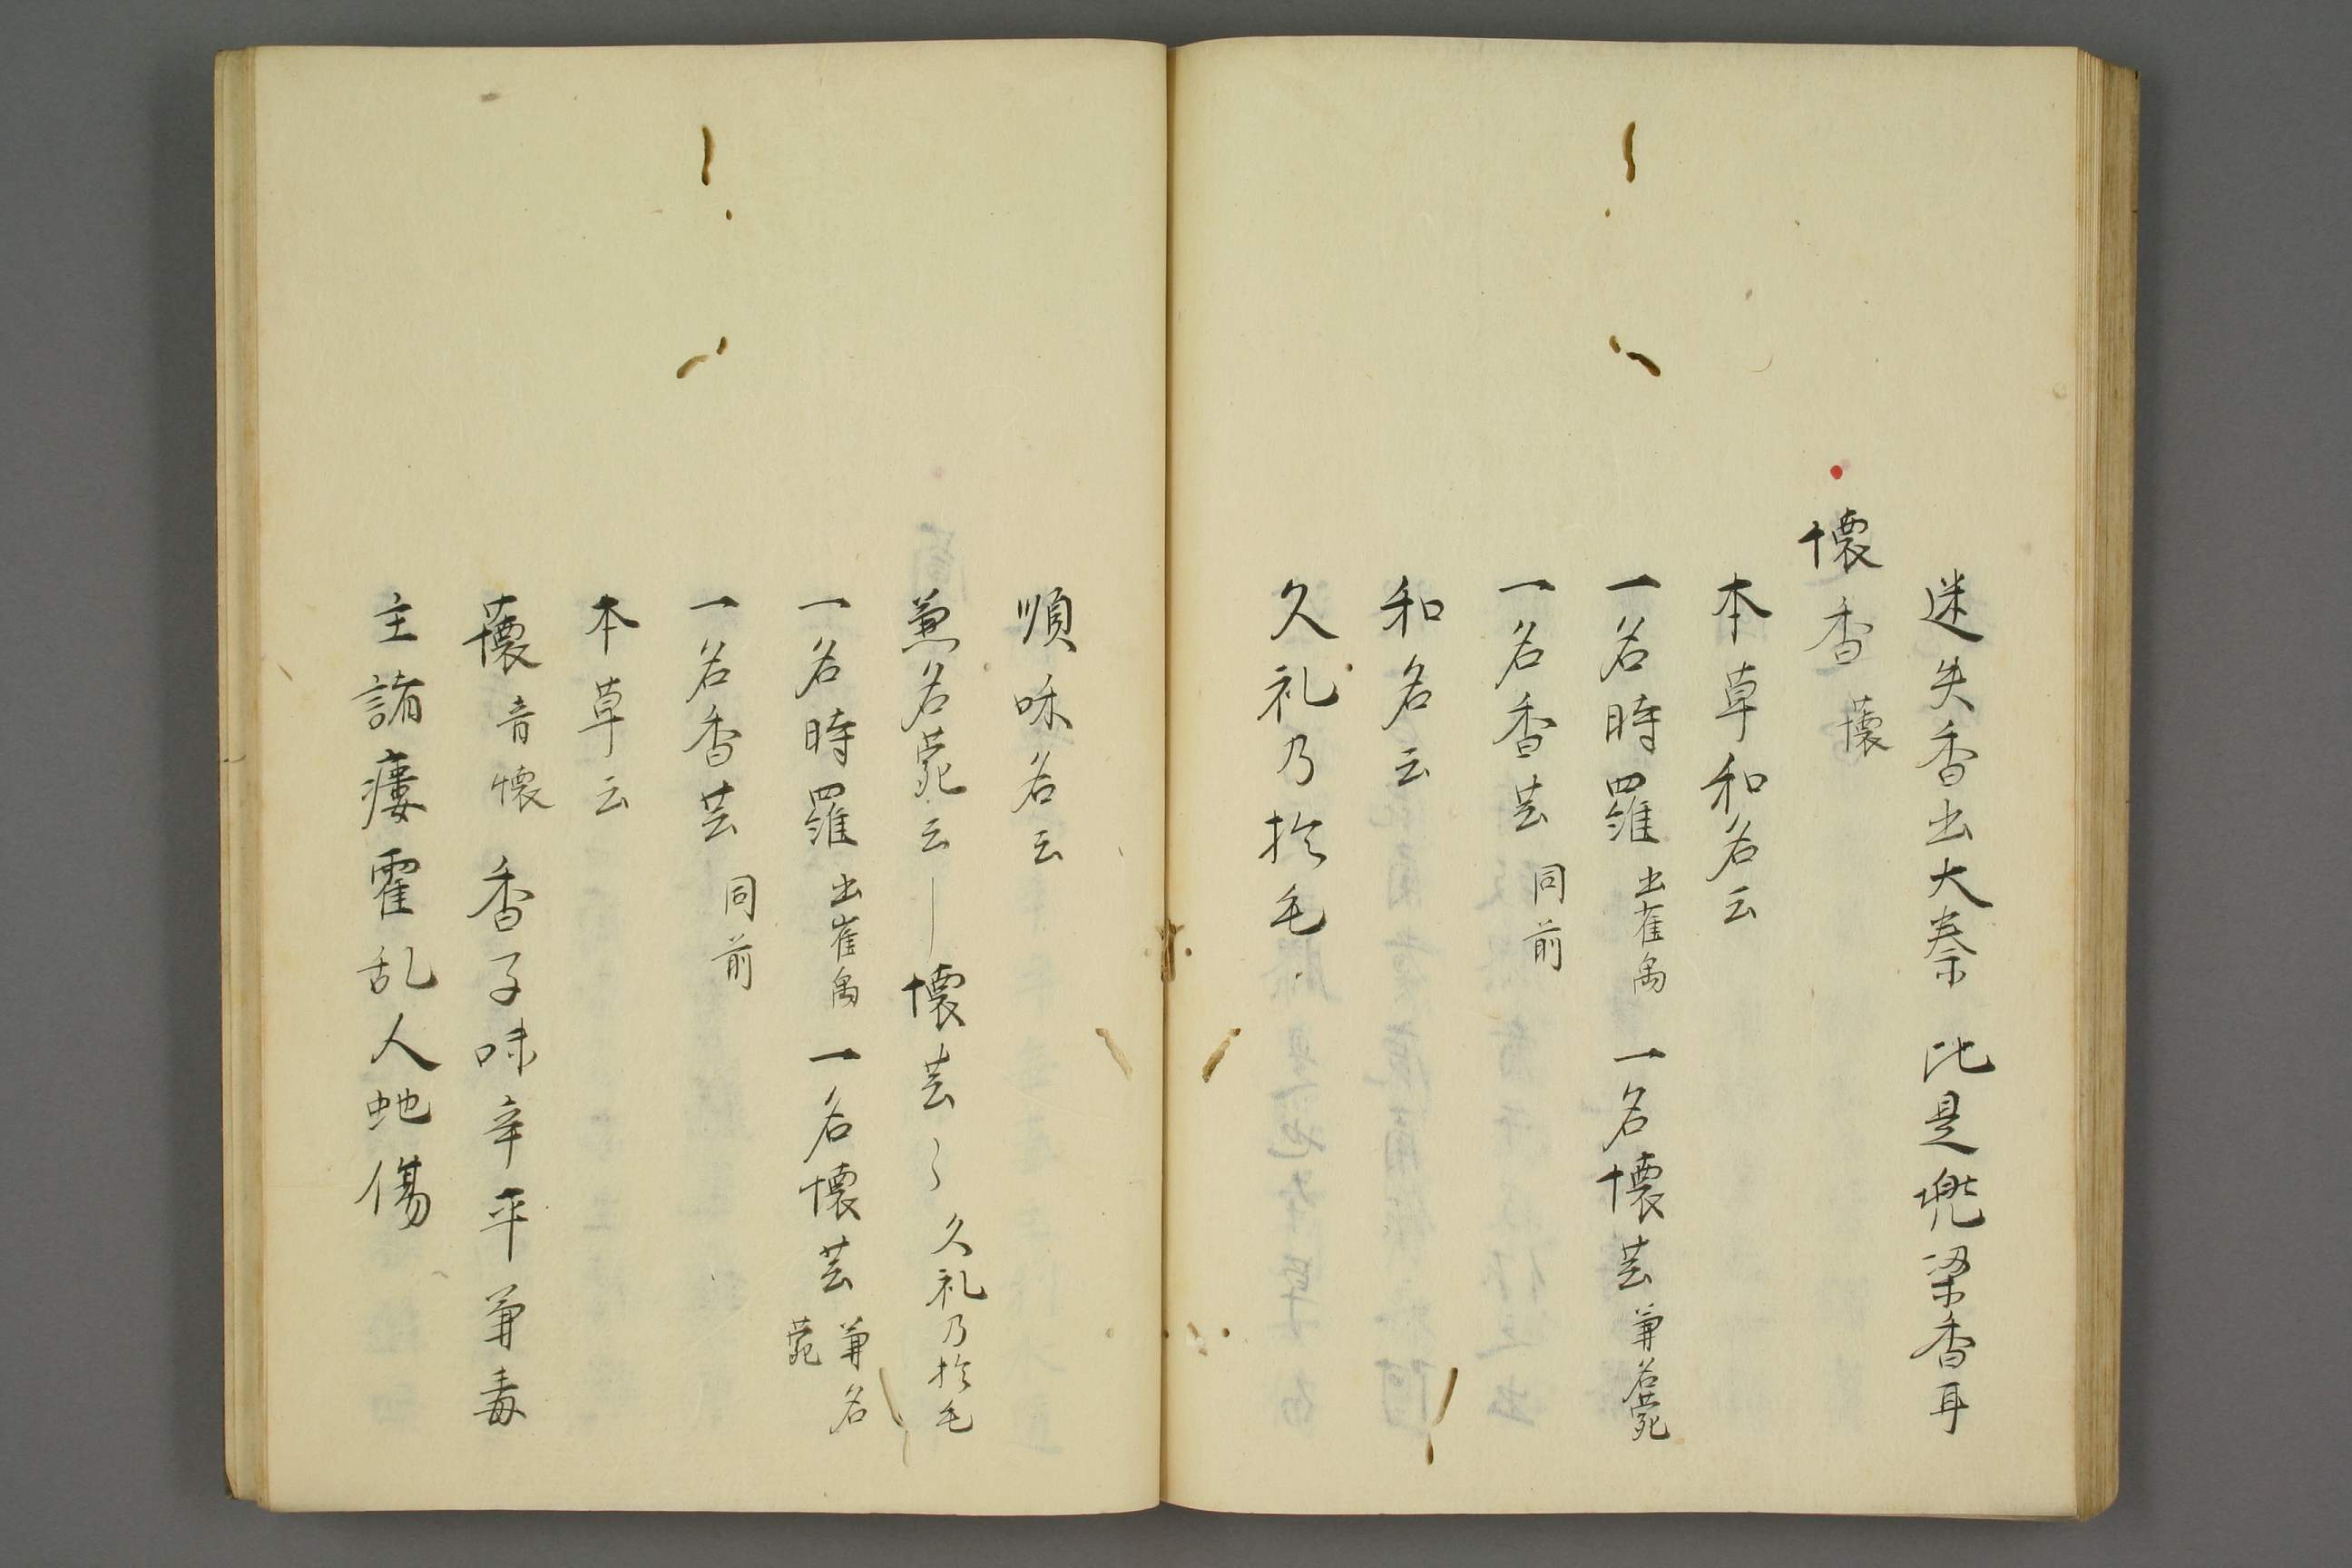 迷失香出大秦 比是兠梁香耳
懐香 蘹
本草和名云
一名時羅 出崔禹 一名懐芸 兼名菀
一名香芸 同前
和名云
久礼乃於毛
順味名云
兼名菀云―懐芸〻 久礼乃於毛
一名時羅 出崔禹 一名懐芸 兼名菀
一名香芸 同前
本草云
蘹 音懐 香子味辛平兼毒
主諸瘻霍乱人虵傷